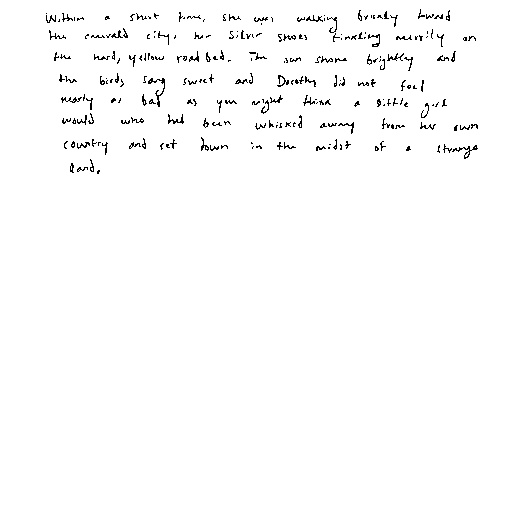 Within a short time, she was walking briskly toward
the emerald city, her Silver Shoes tinkling merrily on
the hard, yellow roadbed. The sun shone brightly and
the birds sang sweet and Dorothy did not feel
nearly as bad as you might think a little girl
would who had been whisked away from her own
country and set down in the midst of a strange
land.